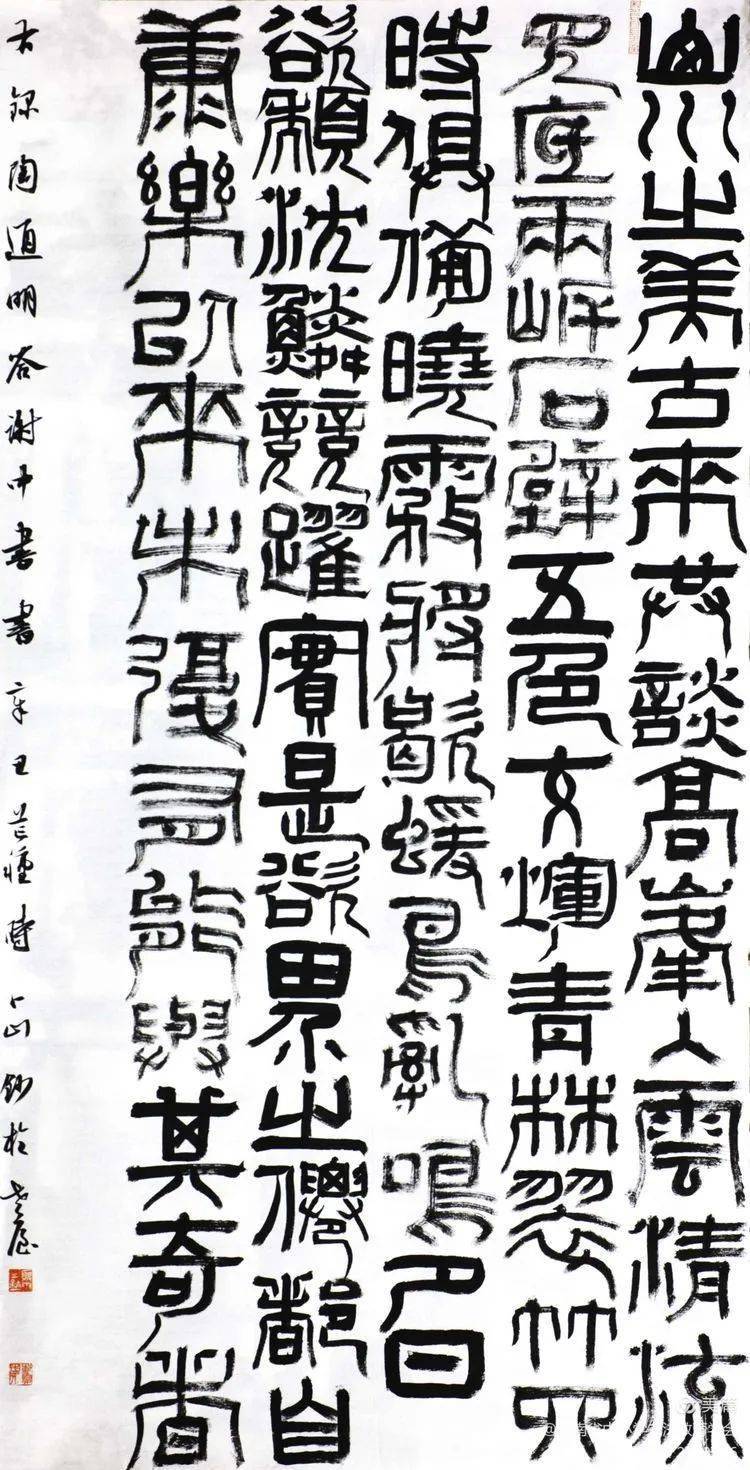 山川之美古來共談高峯入雲清流
見底兩岸石壁五色交輝青林翠竹四
時俱備曉霧將歇蝯鳥亂鳴夕日
欲頹沈鱗競躍實是欲界之僊都自
康樂以來未復有能與其奇者
右錄陶通明答謝中書書辛丑芒種時鈔於